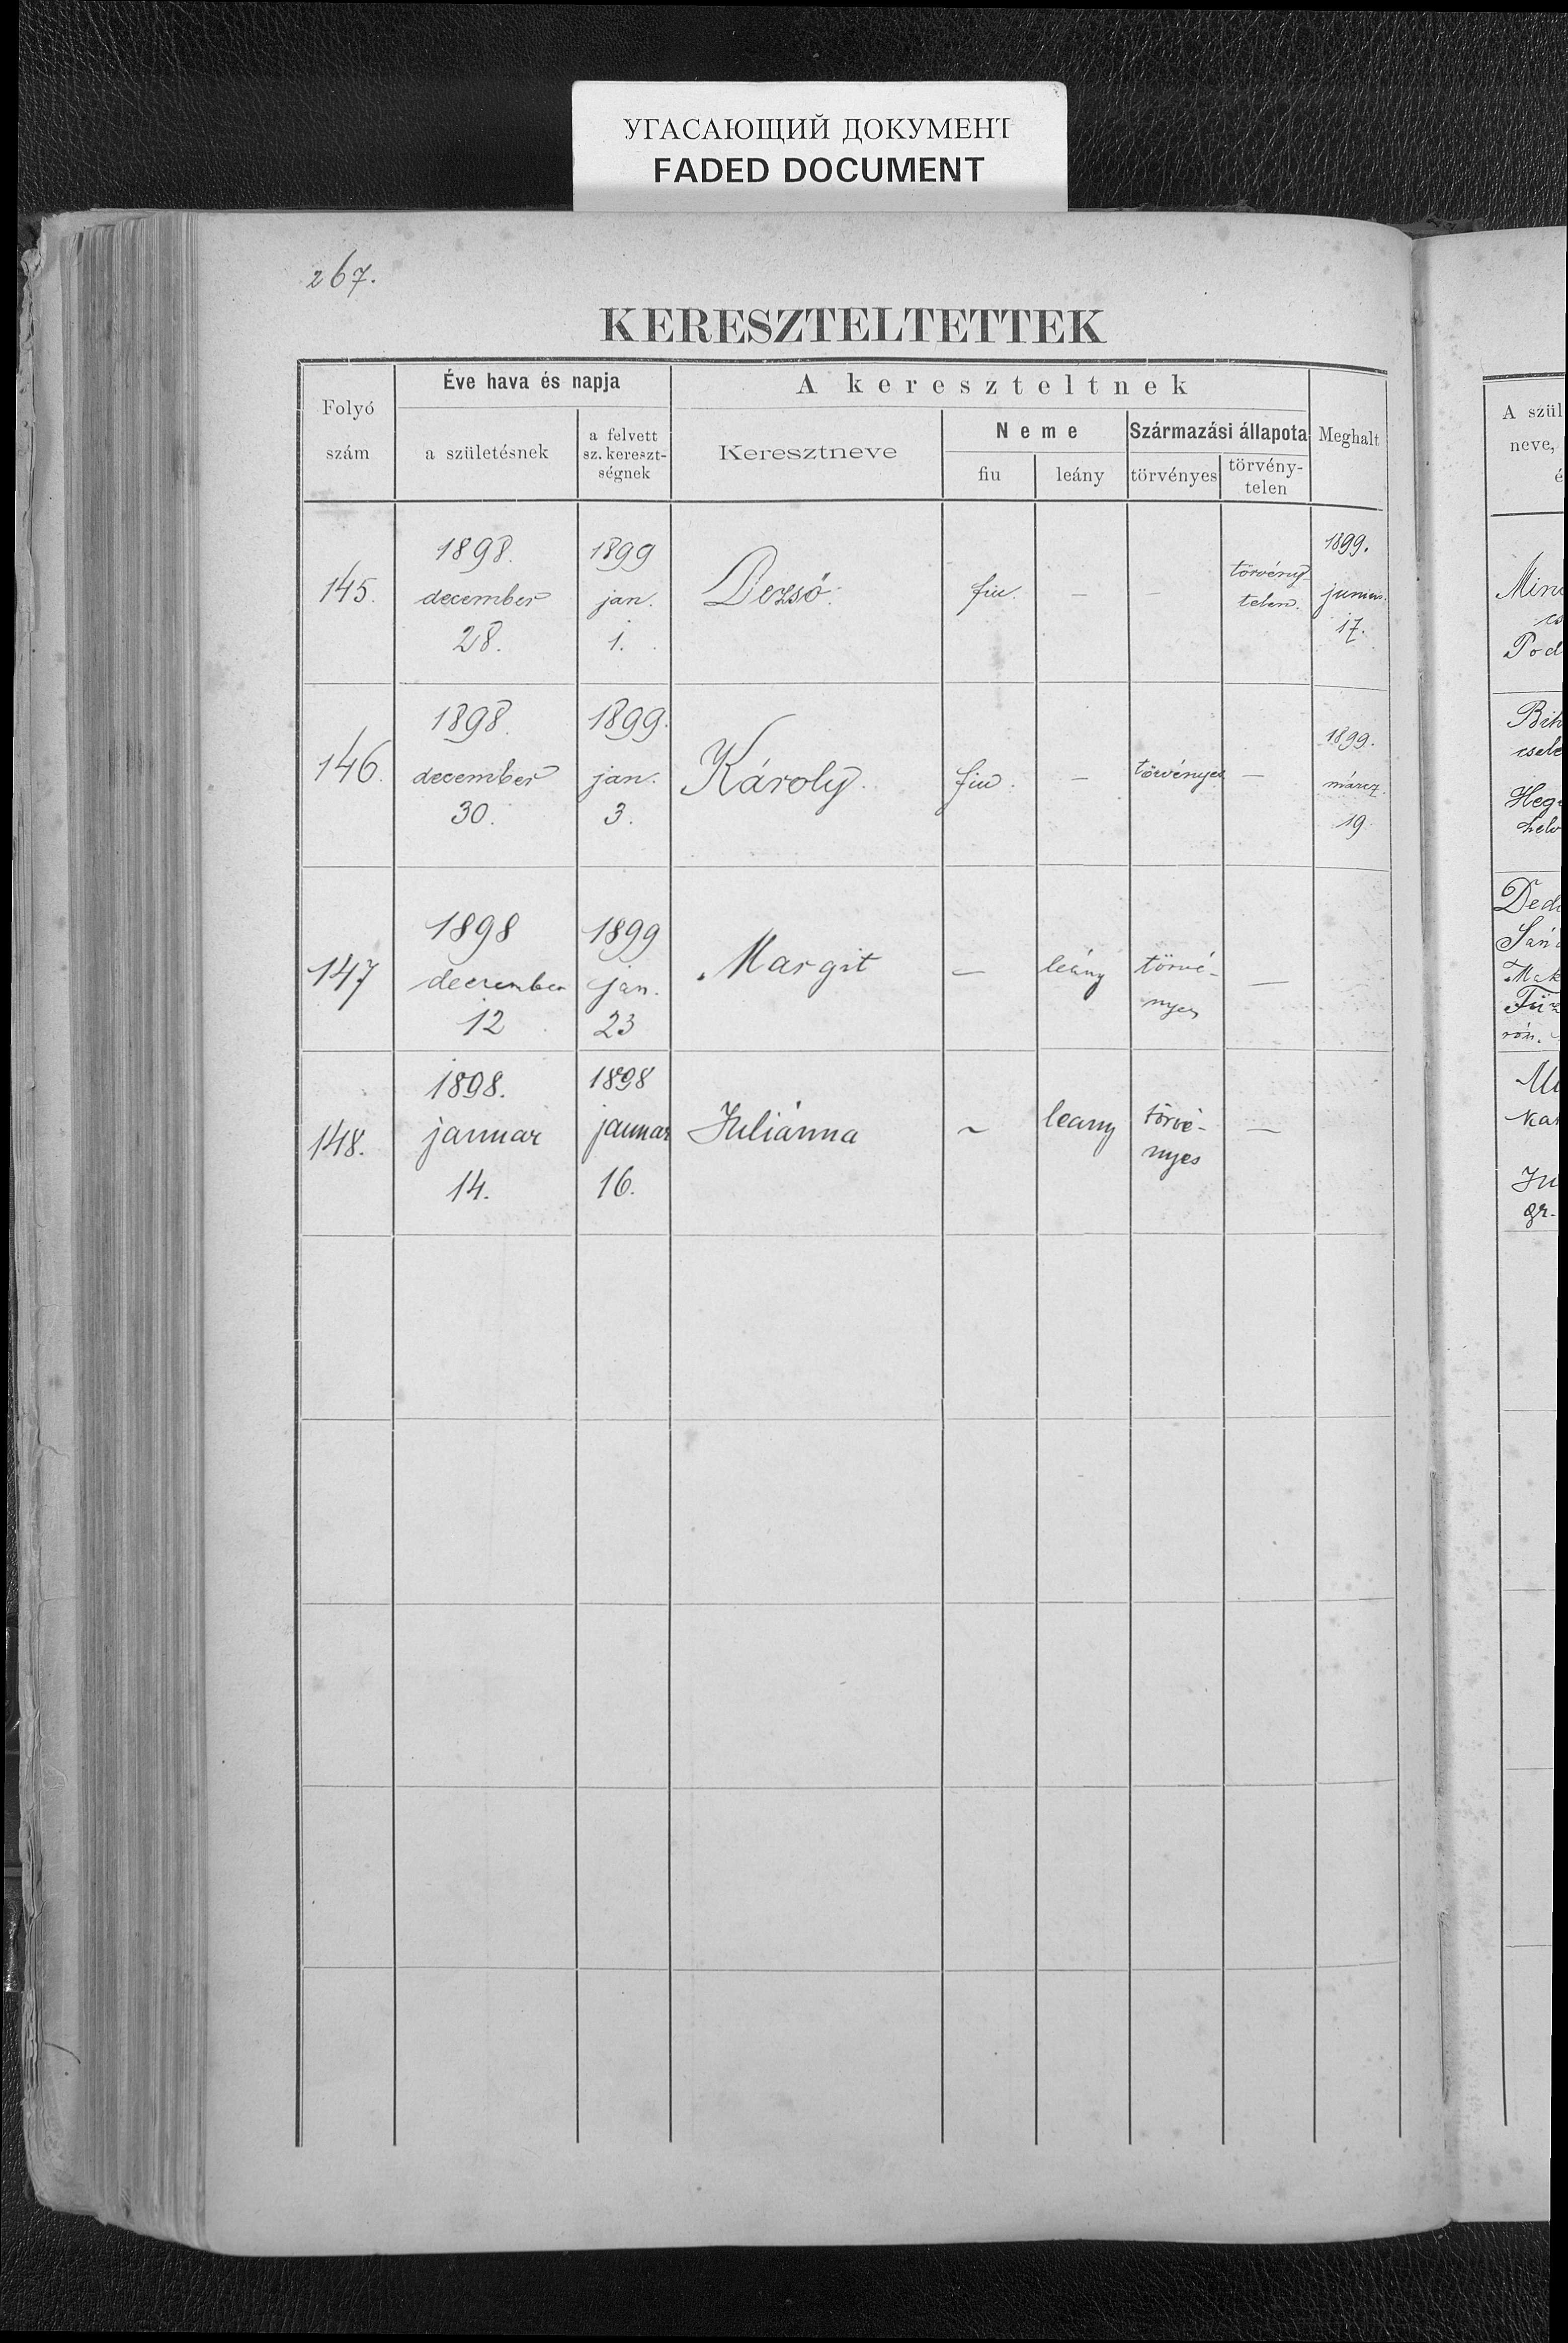 УГАСАЮЩИЙ ДОКУМЕНТ
FADED DOCUMENT
267.
KERESZTELTETTEK
Folyó szám
Éve hava és napja
a születésnek
a felvett sz. kereszt-ségnek
A kereszteltnek
Keresztneve
Neme
fiu
leány
Származási állapota
törvényes
törvény-telen
Meghalt
145. 1898. december 28. 1899 jan. 1. Dezső. fiu. — — törvény-telen. 1899. junius. 17.
146. 1898. december 30. 1899. jan. 3. Károly. fiu. — törvényes — 1899. márcz. 19.
147 1898 december 12 1899 jan. 23 Margit — leány törvé-nyes —
148. 1898. januar 14. 1898 januar 16. Juliánna ~ leany törvé-nyes —
A szül
neve,
é
Pod
Heg
Ded